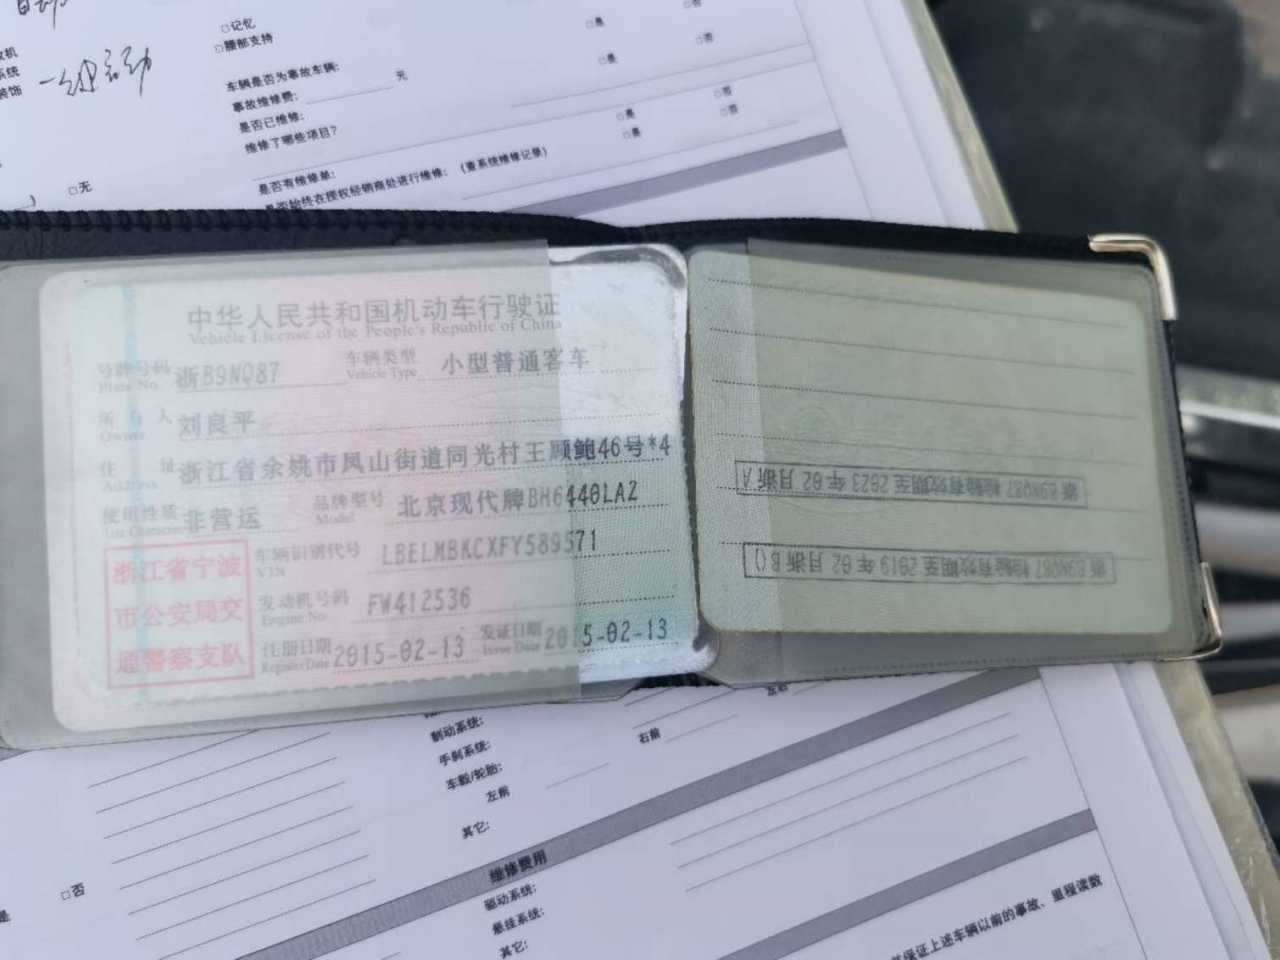 一键启动
□记忆
□腰部支持
车辆是否为事故车辆:
□是 □否
事故维修费: 元
□是 □否
是否已维修:
维修了哪些项目?
□是 □否
□是 □否
□无
是否有维修单:
是否始终在授权经销商处进行维修: (查系统维修记录)
系统
装饰
中华人民共和国机动车行驶证
Vehicle License of the People's Republic of China
号牌号码 浙B9NQ87 车辆类型 小型普通客车
Plate No. Vehicle Type
所有人 刘良平
Owner
住址 浙江省余姚市凤山街道同光村王顾鲍46号*4
Address
使用性质 非营运 品牌型号 北京现代牌BH6440LAZ
Use Character Model
车辆识别代号 LBELMBKCXFY589571
VIN
发动机号码 FW412536
Engine No.
注册日期 2015-02-13 发证日期 2015-02-13
Register Date Issue Date
浙江省宁波
市公安局交
通警察支队
浙B9NQ87 检验有效期至2023年02月浙A
浙B9NQ87 检验有效期至2019年02月浙B()
制动系统:
手刹系统:
右前
左后
车毂/轮胎:
左前
其它:
□否
是
维修费用
驱动系统:
悬挂系统:
其它:
保证上述车辆以前的事故、里程读数